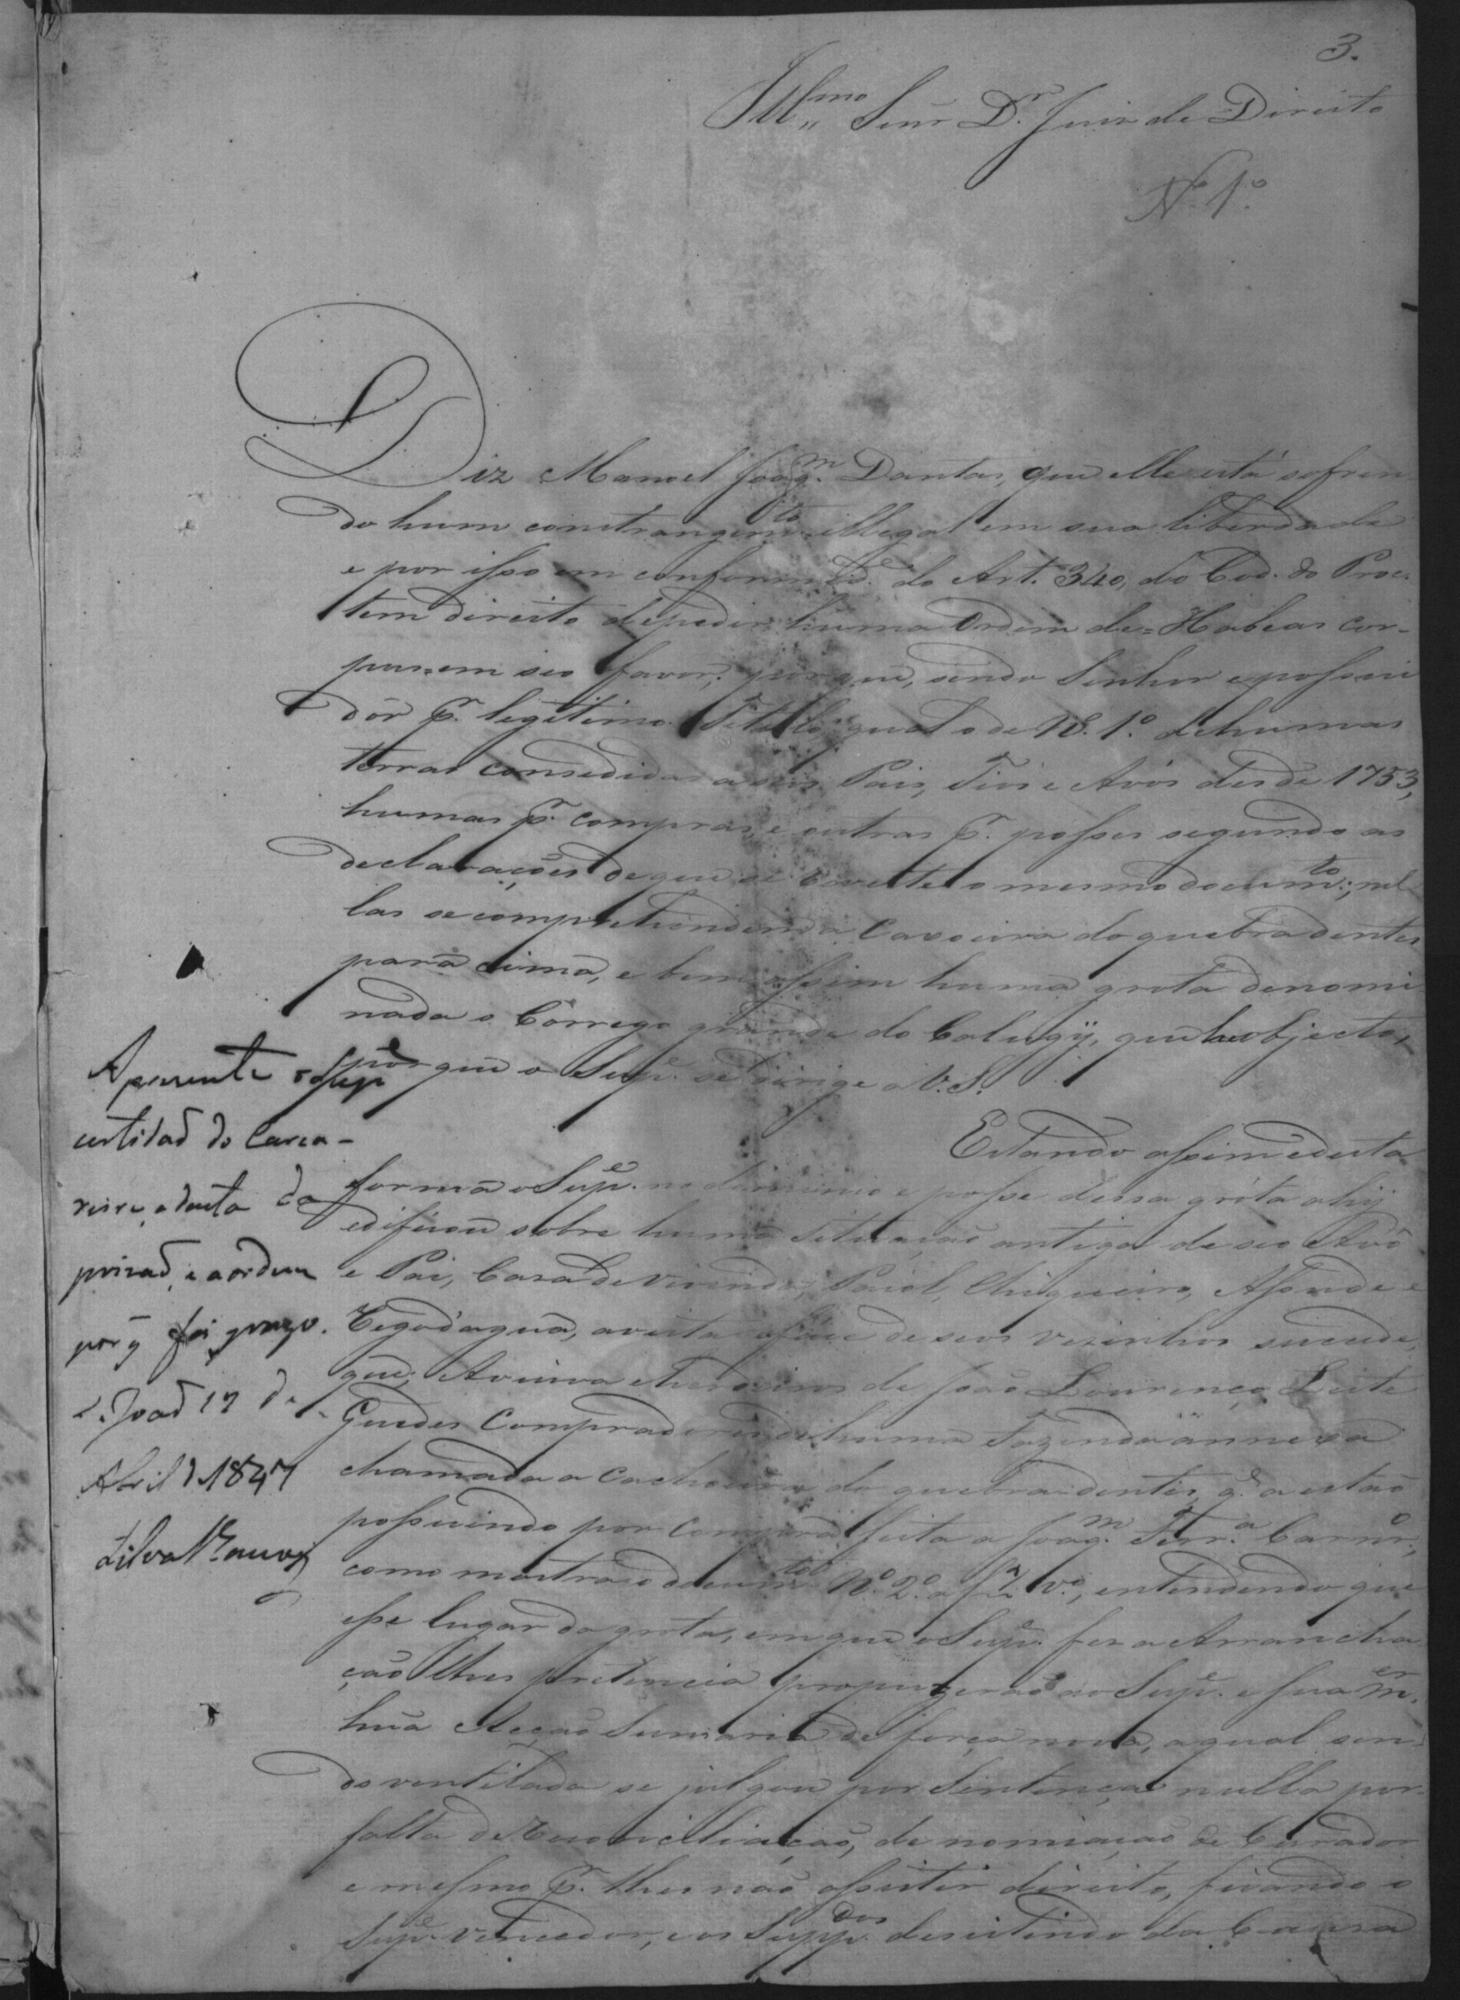 3.
Ill.mo Senr. Dr. Juiz de Direito
N.º 1.º
Diz Manoel Joaq.m Dantas, que elle está sofren
do hum constrangim.to illegal em sua liberdade
e por isso em conformid.e do Art. 340, do Cod. do Proc.
tem direito de pedir huma Ordem de = Habeas cor-
pus = em seo favor; porque, sendo Senhor e possui
dôr p.r legitimo Titulo, qual o de N.º 1.º de humas
terras consedidas a seus Pais, Tios e Avós desde 1753,
humas p.r compras, e outras p.r posses segundo as
declarações de que se reveste o mesmo docum.to; nel
las se comprehendem a Caxoeira do quebra dentes
para cima, e bem assim huma grota denomi
nada o Córrego grande do Calugÿ, que he o objecto,
por que o Sup.e se dirige a V.S.
Estando assim e desta
forma o Sup.e no dominio e posse dessa gróta ahÿ
edificou sobre huma situação antiga de seo Avô
e Pai, Casa de vivenda, Paiol, Chiqueiro, Assude e
Rego d'agua, a vista e face de seos vezinhos sucede,
que; A viuva e herdeiros de João Lourenço Leite
Guedes Compradores de huma Fazenda annexa
chamada a Cachoeira do quebra-dentes, q.e a estão
possuindo por compra feita a Joaq.m Ferr.a Carnr.o,
como mostra o docum.to N.º 2.º a f 7 v.º, entendendo que
esse lugar da grota, em que o Sup.e fez a Arrancha
ção lhes pretencia propuzerão ao Sup.e e sua m.er
hũa Acção Sumaria de força nova, a qual sen
do ventilada se julgou por Sentença nulla por
falta de Reconciliação, de nomiação de Curador
e mesmo p.r lhes não assistir direito, ficando o
Sup.e vencedor, e os Supp.dos desistindo da Causa
Apresente o Sup.e
certidaõ do Carce-
reiro, a data da
prizaõ, e a ordem
por q̃ foi prezo.
S. Joaõ 17 de
Abril d 1847
Silva